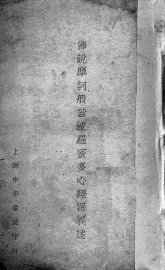 佛說摩訶般若波羅蜜多心經密義述
上海中華書局印